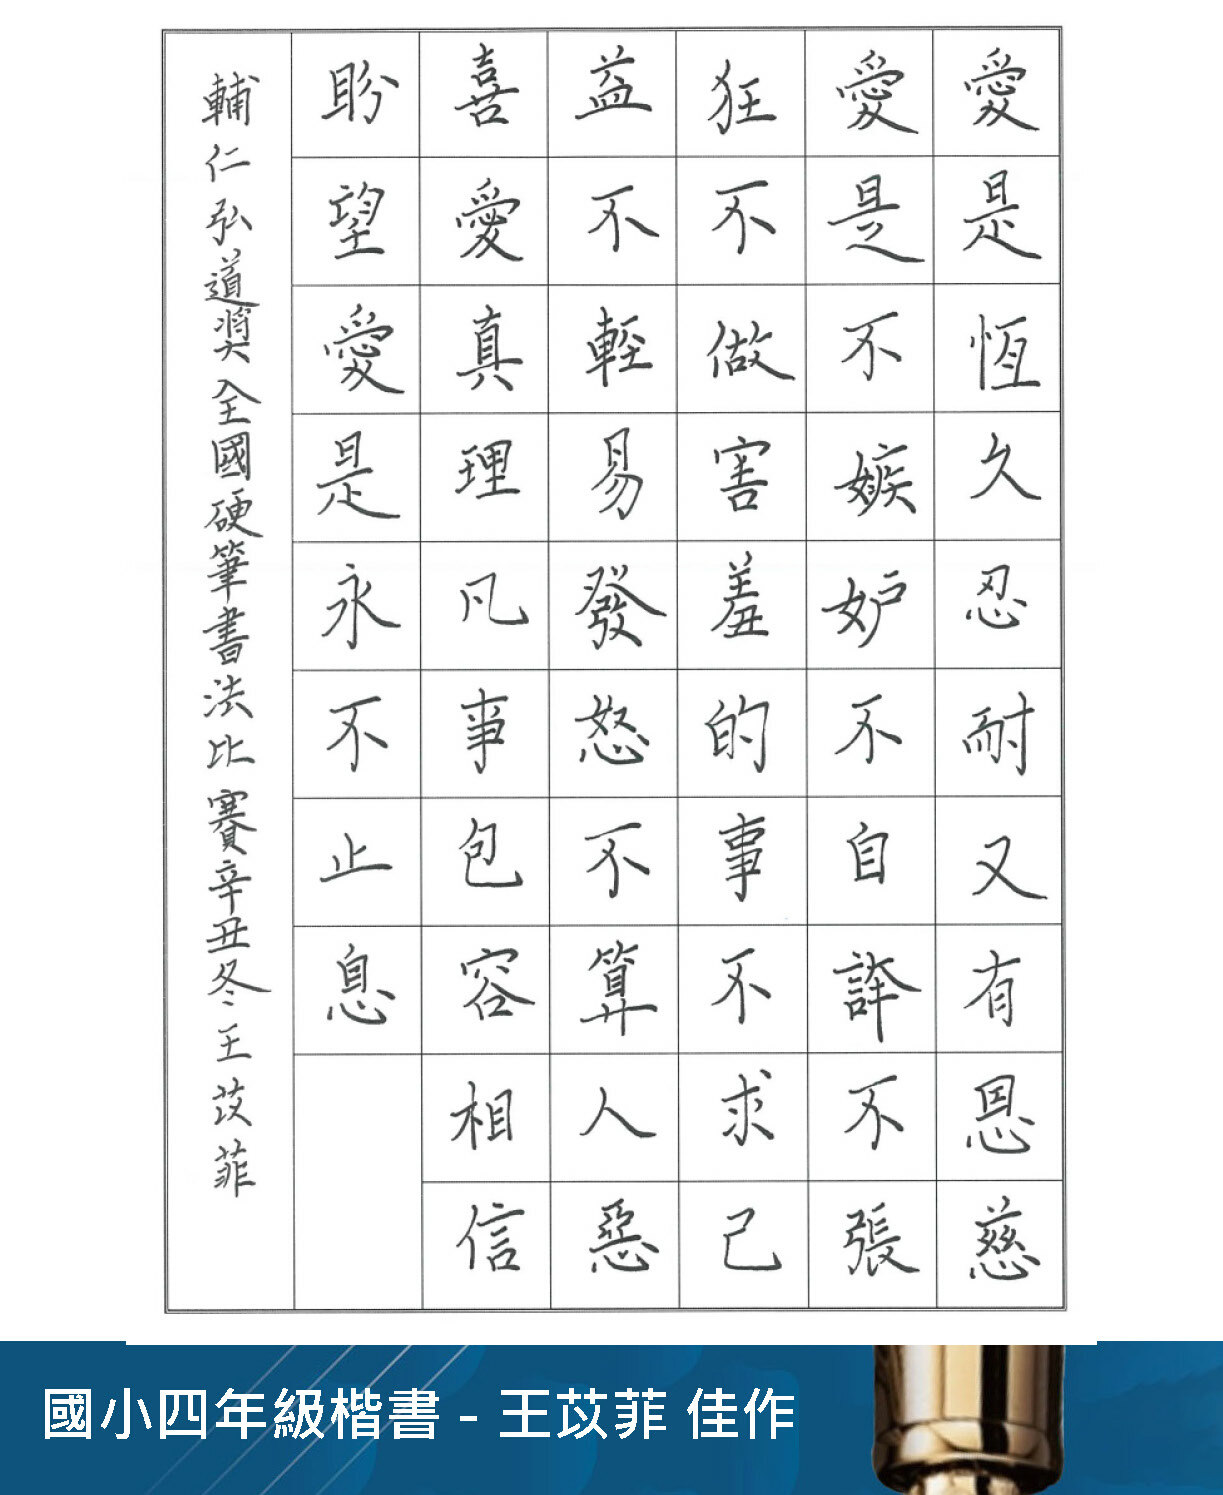 愛是恆久忍耐又有恩慈
愛是不嫉妒不自誇不張
狂不做害羞的事不求己
益不輕易發怒不算人惡
喜愛真理凡事包容相信
盼望愛是永不止息
輔仁弘道獎全國硬筆書法比賽辛丑冬王苡菲
國小四年級楷書 - 王苡菲 佳作